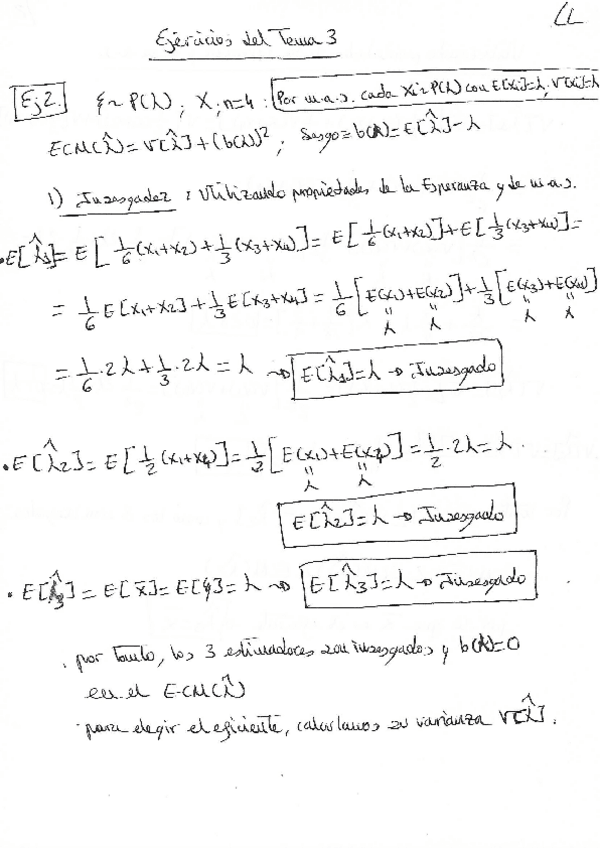 LL
Ejercicios del Tema 3
Ej2. ξ ~ P(λ); X; n=4: Por m.a.s. cada Xi~P(λ) con E[Xi]=λ, V[Xi]=λ
ECM(λ̂) = V[λ̂] + (b(λ))²; Sesgo = b(λ) = E[λ̂] - λ
1) Insesgadez: Utilizando propiedades de la Esperanza y de m.a.s.
• E[λ̂1] = E[1/6(x1+x2) + 1/3(x3+x4)] = E[1/6(x1+x2)] + E[1/3(x3+x4)] =
= 1/6 E[x1+x2] + 1/3 E[x3+x4] = 1/6 [E(x1)+E(x2)] + 1/3 [E(x3)+E(x4)]
" " " "
λ λ λ λ
= 1/6 · 2λ + 1/3 · 2λ = λ → E[λ̂1] = λ → Insesgado
• E[λ̂2] = E[1/2(x1+x4)] = 1/2 [E(x1)+E(x4)] = 1/2 · 2λ = λ.
" "
λ λ
E[λ̂2] = λ → Insesgado
• E[λ̂3] = E[x̄] = E[ξ] = λ → E[λ̂3] = λ → Insesgado
. por tanto, los 3 estimadores son insesgados y b(λ)=0
en el ECM(λ̂)
para elegir el eficiente, calculamos su varianza V[λ̂].